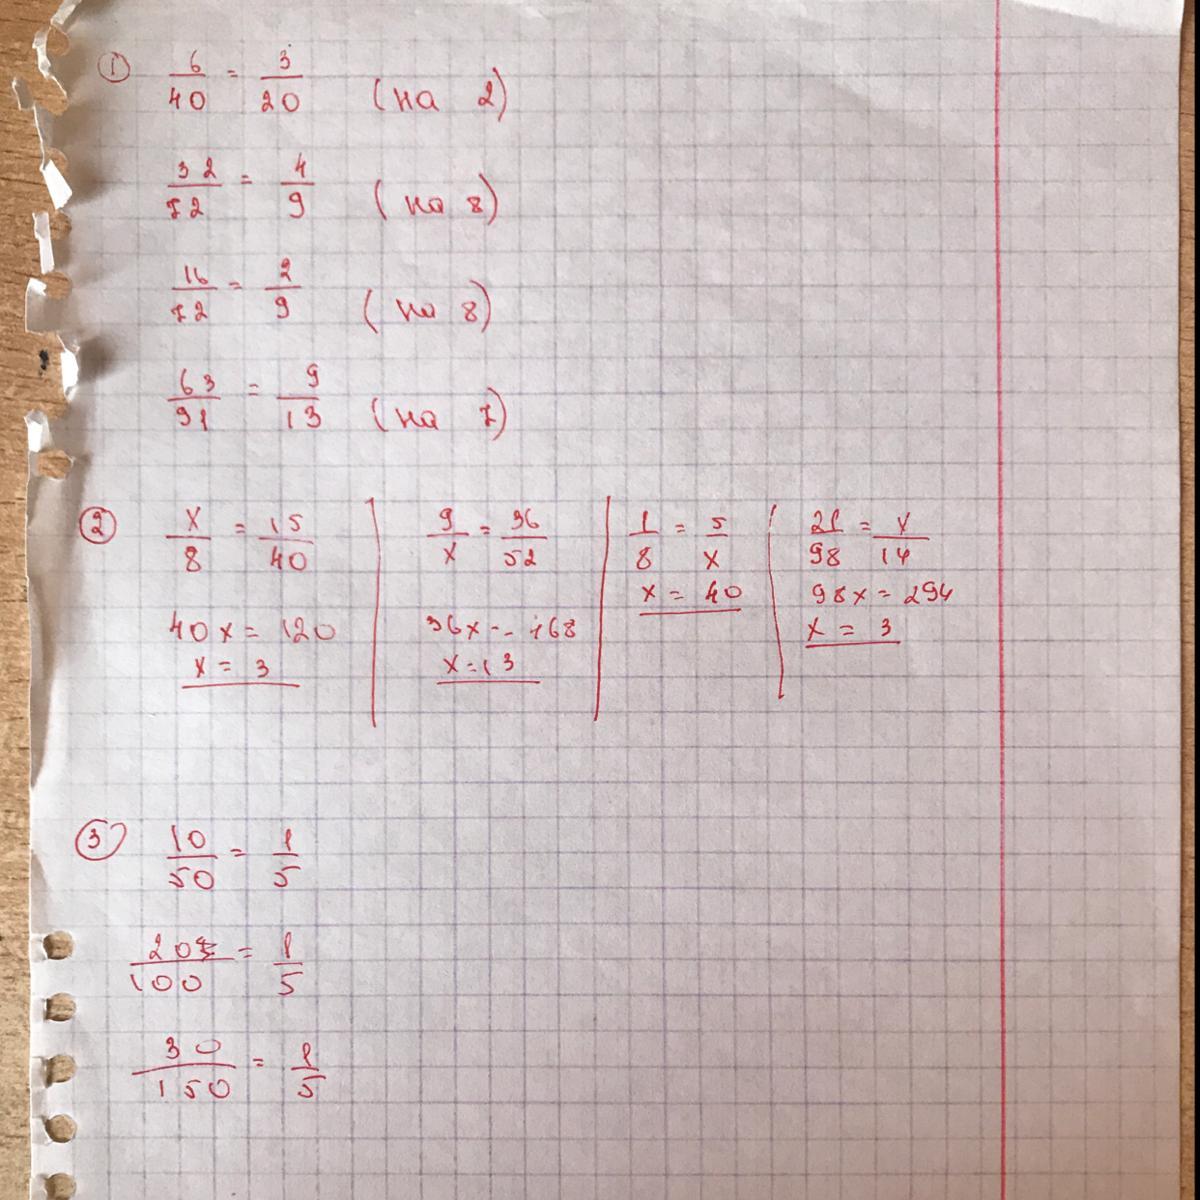 ① 6/40 = 3/20 (на 2)
32/72 = 4/9 (на 8)
16/72 = 2/9 (на 8)
63/91 = 9/13 (на 7)
② x/8 = 15/40
40x = 120
x = 3
9/x = 36/52
36x = 468
x = 13
1/8 = 5/x
x = 40
21/98 = x/14
98x = 294
x = 3
③ 10/50 = 1/5
20/100 = 1/5
30/150 = 1/5